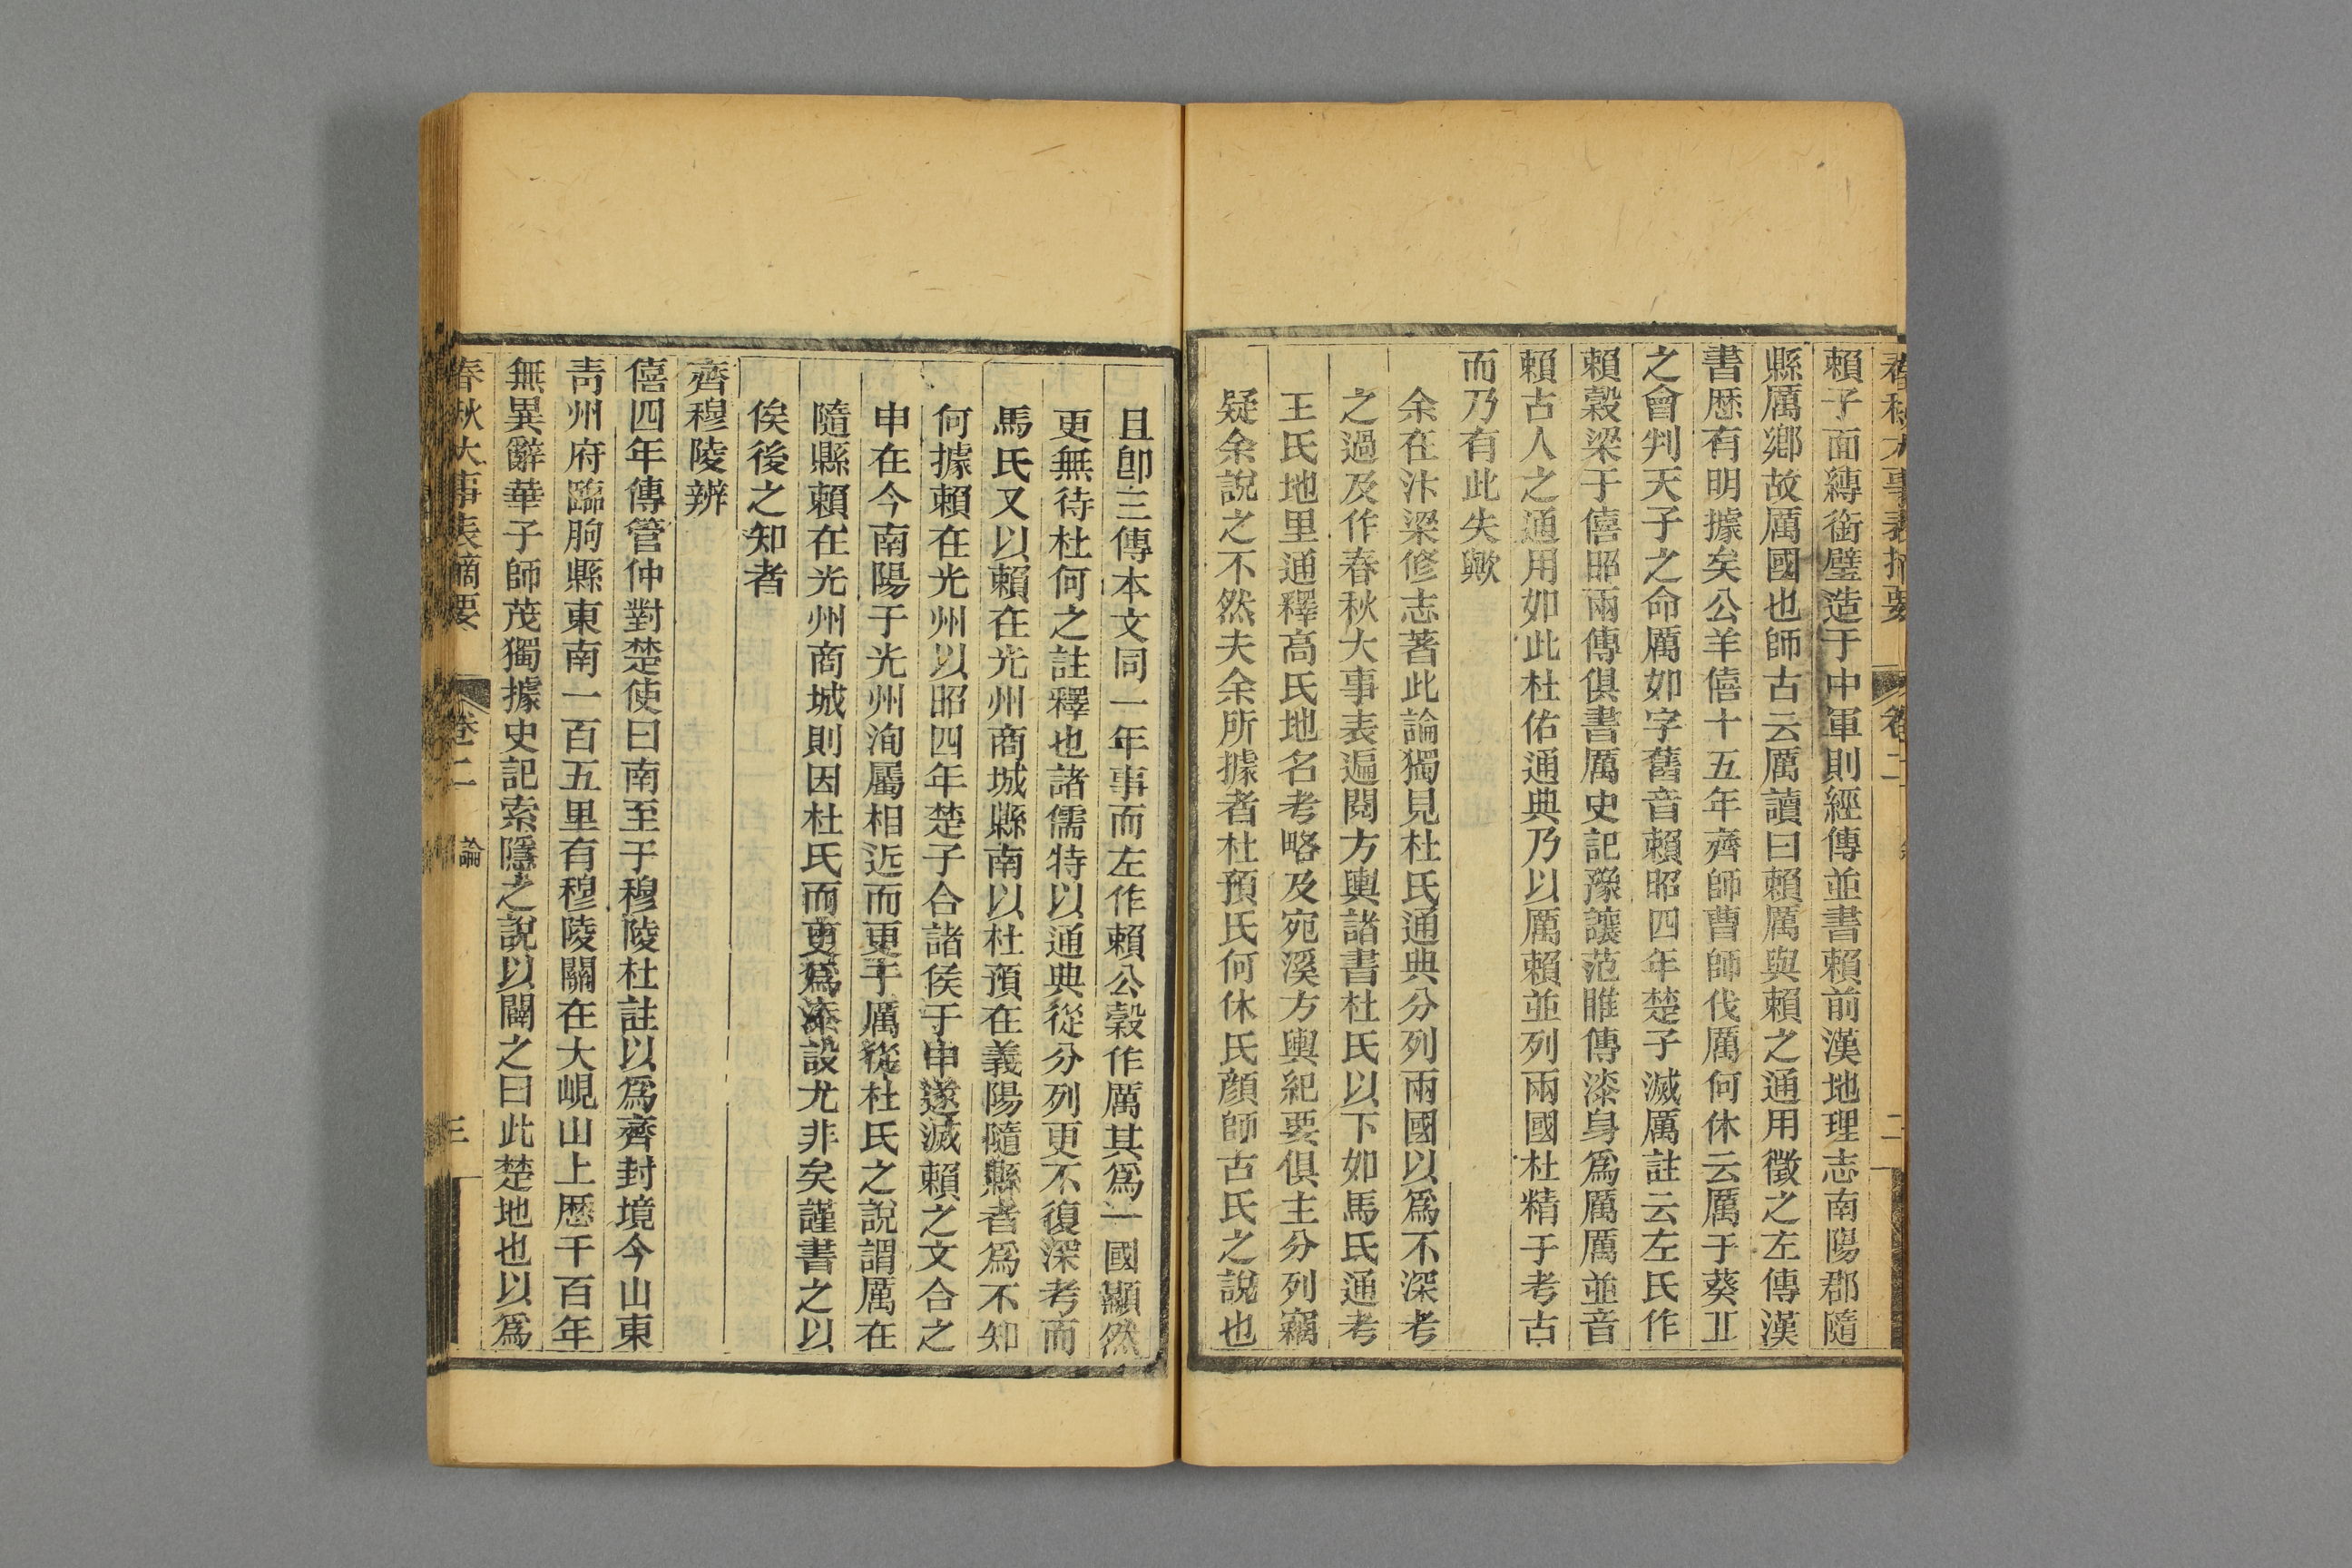 春秋大事表摘要
卷二
二
賴子面縛銜璧造于中軍則經傳並書賴前漢地理志南陽郡隨
縣厲鄉故厲國也師古云厲讀曰賴厲與賴之通用徵之左傳漢
書歴有明據矣公羊僖十五年齊師曹師伐厲何休云厲于葵丘
之會判天子之命厲如字舊音賴昭四年楚子滅厲註云左氏作
賴穀梁于僖昭兩傳俱書厲史記豫讓范睢傳漆身爲厲厲並音
賴古人之通用如此杜佑通典乃以厲賴並列兩國杜精于考古
而乃有此失歟
余在汴梁修志著此論獨見杜氏通典分列兩國以爲不深考
之過及作春秋大事表遍閱方輿諸書杜氏以下如馬氏通考
王氏地里通釋高氏地名考略及宛溪方輿紀要俱主分列竊
疑余說之不然夫余所據者杜預氏何休氏顏師古氏之說也
且卽三傳本文同一年事而左作賴公穀作厲其爲一國顯然
更無待杜何之註釋也諸儒特以通典從分列更不復深考而
馬氏又以賴在光州商城縣南以杜預在義陽隨縣者爲不知
何據賴在光州以昭四年楚子合諸侯于申遂滅賴之文合之
申在今南陽于光州洵屬相近而更于厲從杜氏之說謂厲在
隨縣賴在光州商城則因杜氏而更爲添設尤非矣謹書之以
俟後之知者
齊穆陵辨
僖四年傳管仲對楚使曰南至于穆陵杜註以爲齊封境今山東
靑州府臨朐縣東南一百五里有穆陵關在大峴山上歷千百年
無異辭華子師茂獨據史記索隱之說以闢之曰此楚地也以爲
春秋大事表摘要
卷二
論
三